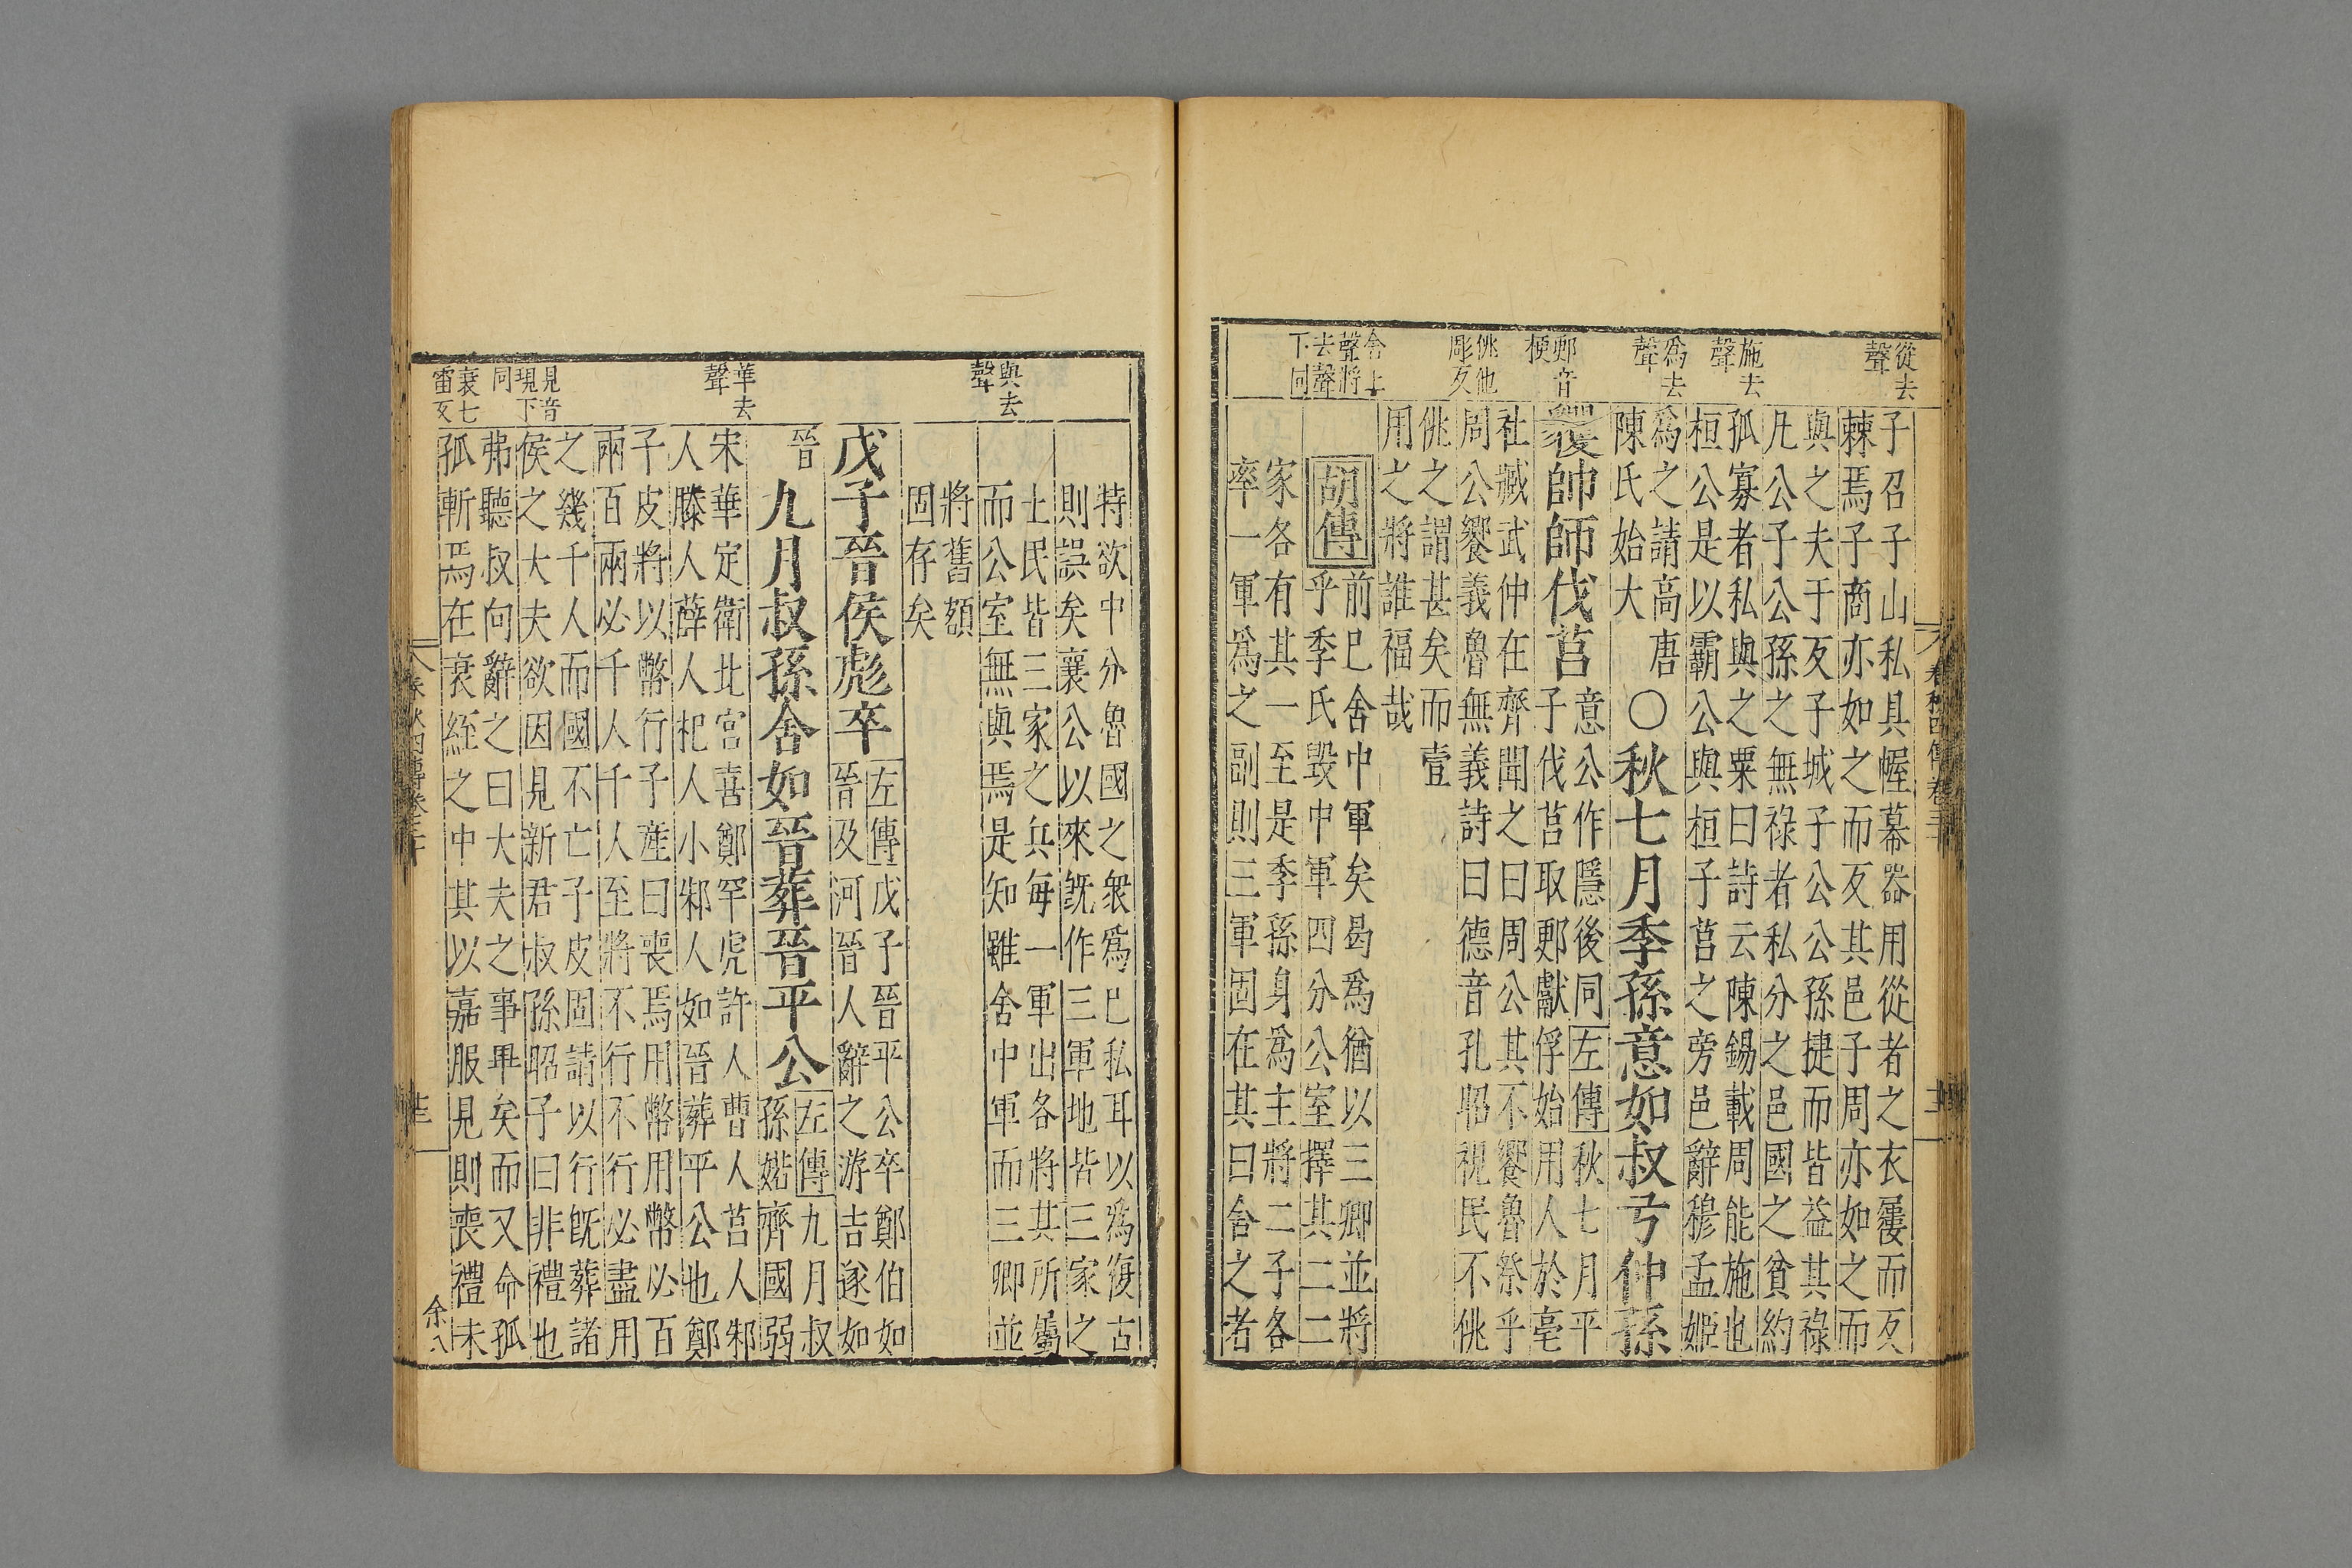 從去聲
施去聲
爲去聲
郠音梗
佻他彫反
舍上聲將去聲下同
子召子山私具幄幕器用從者之衣屨而反
棘焉子商亦如之而反其邑子周亦如之而
與之夫于反子城子公公孫捷而皆益其祿
凡公子公孫之無祿者私分之邑國之貧約
孤寡者私與之粟曰詩云陳錫載周能施也
桓公是以霸公與桓子莒之旁邑辭穆孟姬
爲之請高唐
陳氏始大
○秋七月季孫意如叔弓仲孫
貜帥師伐莒
意公作隱後同左傳秋七月平
子伐莒取郠獻俘始用人於亳
社臧武仲在齊聞之曰周公其不饗魯祭乎
周公饗義魯無義詩曰德音孔昭視民不佻
佻之謂甚矣而壹
用之將誰福哉
胡傳
前已舍中軍矣曷爲猶以三卿並將
乎季氏毀中軍四分公室擇其二二
家各有其一至是季孫身爲主將二子各
率一軍爲之副則三軍固在其曰舍之者
春秋四傳卷三十
與去聲
華去聲
見音現下同
衰七雷反
特欲中分魯國之衆爲已私耳以爲復古
則誤矣襄公以來旣作三軍地皆三家之
土民皆三家之兵每一軍出各將其所屬
而公室無與焉是知雖舍中軍而三卿並
將舊額
固存矣
戊子晉侯彪卒
左傳戊子晉平公卒鄭伯如
晉及河晉人辭之游吉遂如
晉
九月叔孫舍如晉葬晉平公
左傳九月叔
孫婼齊國弱
宋華定衛北宮喜鄭罕虎許人曹人莒人邾
人滕人薛人杞人小邾人如晉葬平公也鄭
子皮將以幣行子產曰喪焉用幣用幣必百
兩百兩必千人千人至將不行不行必盡用
之幾千人而國不亡子皮固請以行旣葬諸
侯之大夫欲因見新君叔孫昭子曰非禮也
弗聽叔向辭之曰大夫之事畢矣而又命孤
孤斬焉在衰絰之中其以嘉服見則喪禮未
春秋四傳卷三十
余八